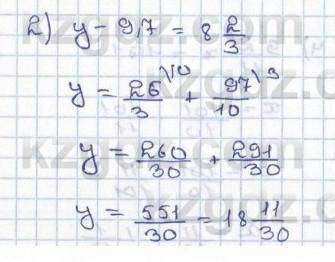 2) y - 9,7 = 8 2/3
y = 26/3 \10 + 97/10 \3
y = 260/30 + 291/30
y = 551/30 = 18 11/30